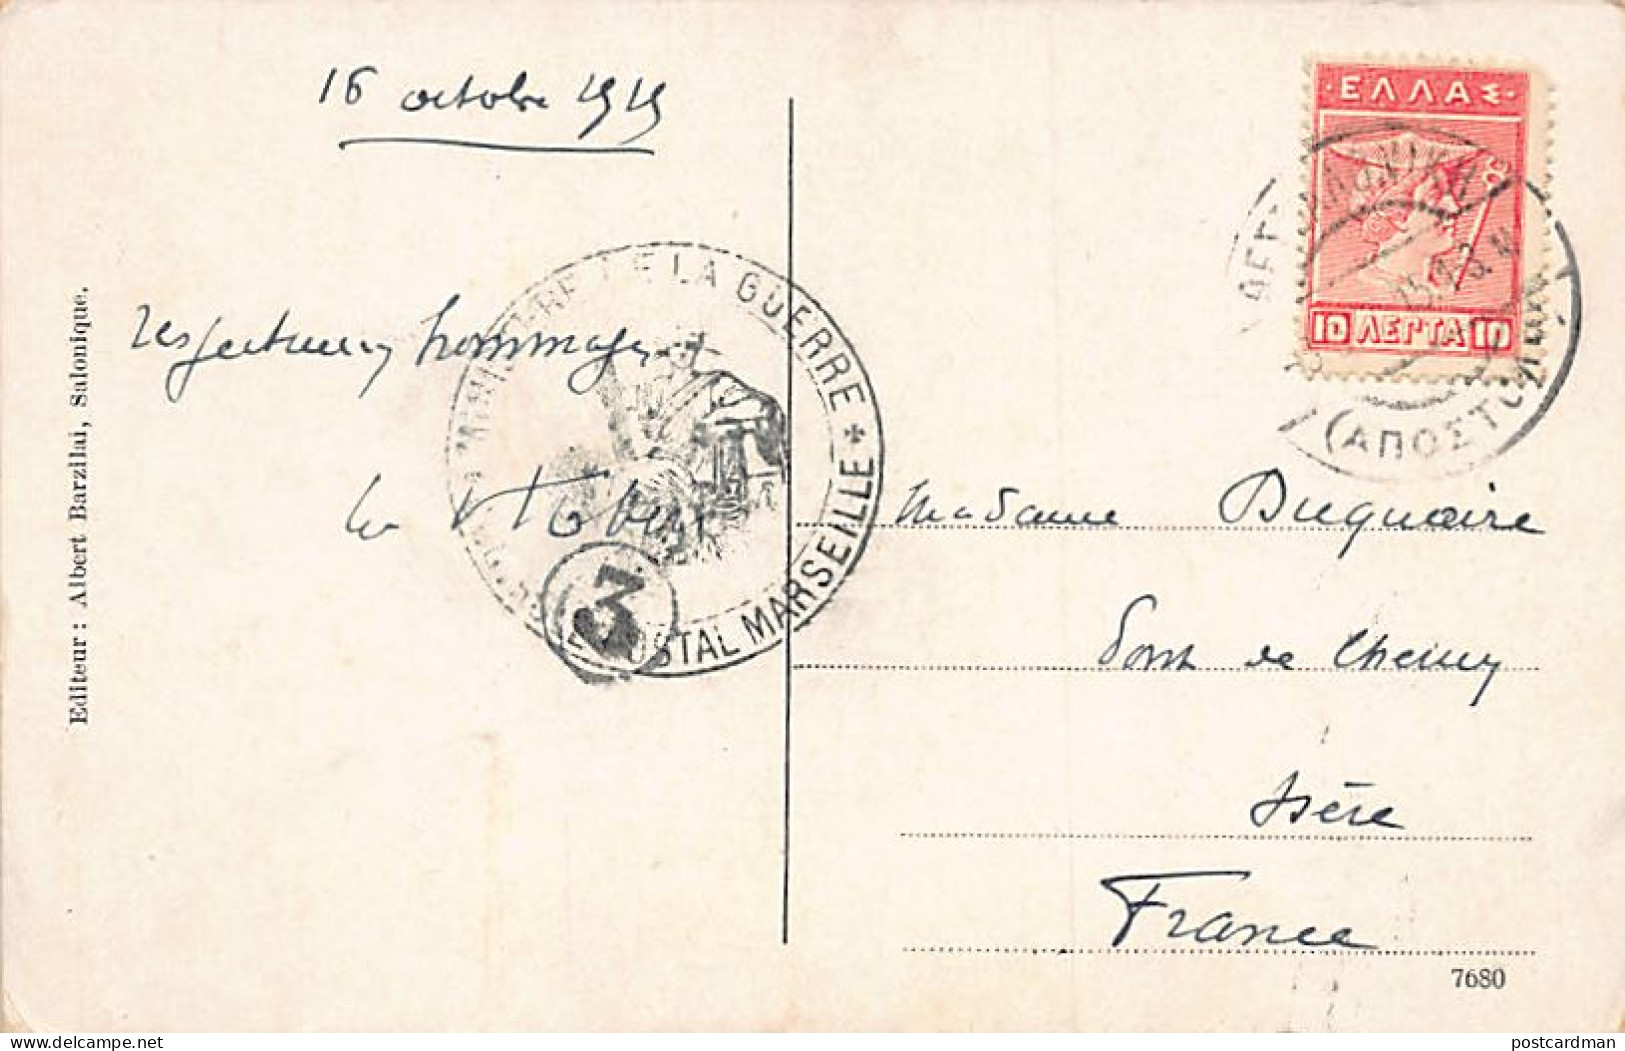 16 octobre 1919
respectueux hommages
Editeur : Albert Barzilai, Salonique.
MINISTERE DE LA GUERRE
POSTAL MARSEILLE
3
·ΕΛΛΑΣ·
10 ΛΕΠΤΑ 10
(ΑΠΟΣΤΟΛ
Madame Duquaire
Pont de Cheruy
Isère
France
7680
postcardman